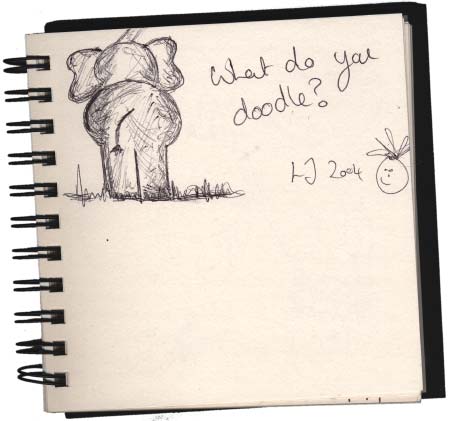 What do you
doodle?
LJ 2004